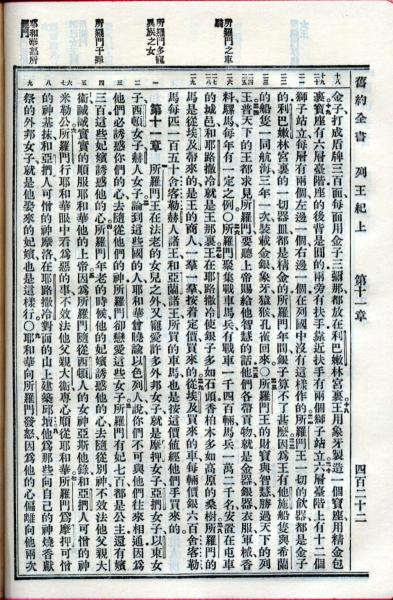 舊約全書 列王紀上 第十一章 四百二十二
金子打成盾牌三百面每面用金子三彌那都放在利巴嫩林宮裏王用象牙製造一個寶座用精金包
裹寶座有六層臺階座的後背是圓的兩旁有扶手靠近扶手有兩個獅子站立六層臺階上有十二個
獅子站立每層有兩個左邊一個右邊一個在列國中沒有這樣作的所羅門王一切的飲器都是金子
的利巴嫩林宮裏的一切器皿都是精金的所羅門年間銀子算不了甚麽因爲王有他施船隻與希蘭
的船隻一同航海三年一次裝載金銀象牙猿猴孔雀回來〇所羅門王的財寶與智慧勝過天下的列
王普天下的王都求見所羅門要聽上帝賜給他智慧的話他們各帶貢物就是金器銀器衣服軍械香
料騾馬每年有一定之例〇所羅門聚集戰車馬兵有戰車一千四百輛馬兵一萬二千名安置在屯車
的城邑和耶路撒冷就是王那裏王在耶路撒冷使銀子多如石頭香柏木多如高原的桑樹所羅門的
馬是從埃及帶來的是王的商人一羣一羣按着定價買來的從埃及買來的車每輛價銀六百舍客勒
馬每匹一百五十舍客勒赫人諸王和亞蘭諸王所買的車馬也是按這價值經他們手買來的
第十一章 所羅門王在法老的女兒之外又寵愛許多外邦女子就是摩押女子亞捫女子以東女
子西頓女子赫人女子論到這些國的人耶和華曾曉諭以色列人說你們不可與他們往來相通因爲
他們必誘惑你們的心去隨從他們的神所羅門卻戀愛這些女子所羅門有妃七百都是公主還有嬪
三百這些妃嬪誘惑他的心所羅門年老的時候他的妃嬪誘惑他的心去隨從別神不效法他父親大
衛誠誠實實的順服耶和華他的上帝因爲所羅門隨從西頓人的女神亞斯他錄和亞捫人可憎的神
米勒公所羅門行耶和華眼中看爲惡的事不效法他父親大衛專心順從耶和華所羅門爲摩押可憎
的神基抹和亞捫人可憎的神摩洛在耶路撒冷對面的山上建築邱壇他爲那些向自己的神燒香獻
祭的外邦女子就是他娶來的妃嬪也是這樣行〇耶和華向所羅門發怒因爲他的心偏離向他兩次
所羅門之車
所羅門多寵
異族之女
所羅門干罪
耶和華怒所
羅門